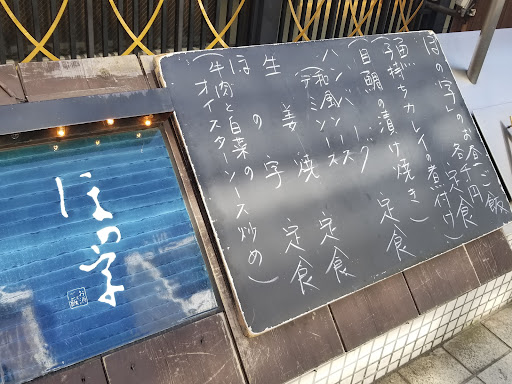 ほの字のお昼ご飯
各定食千円
魚
(子持ちカレイの煮付け)
(目鯛の漬け焼き) 定食
ハンバーグ 定食
(和風ソース
デミソース)
生姜焼 定食
ほの字 定食
(牛肉と白菜の
オイスターソース炒め)
ほの字